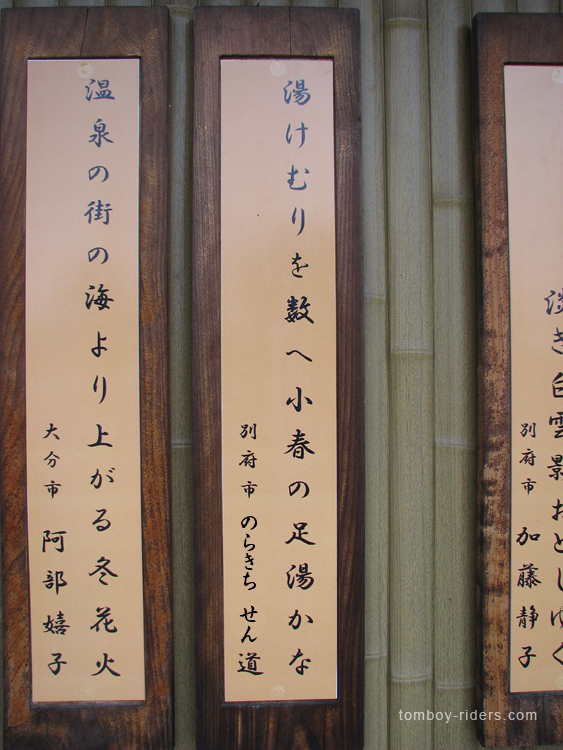 淡き白雲影おとしゆく
別府市 加藤静子
湯けむりを数へ小春の足湯かな
別府市 のらきち せん道
温泉の街の海より上がる冬花火
大分市 阿部嬉子
tomboy-riders.com